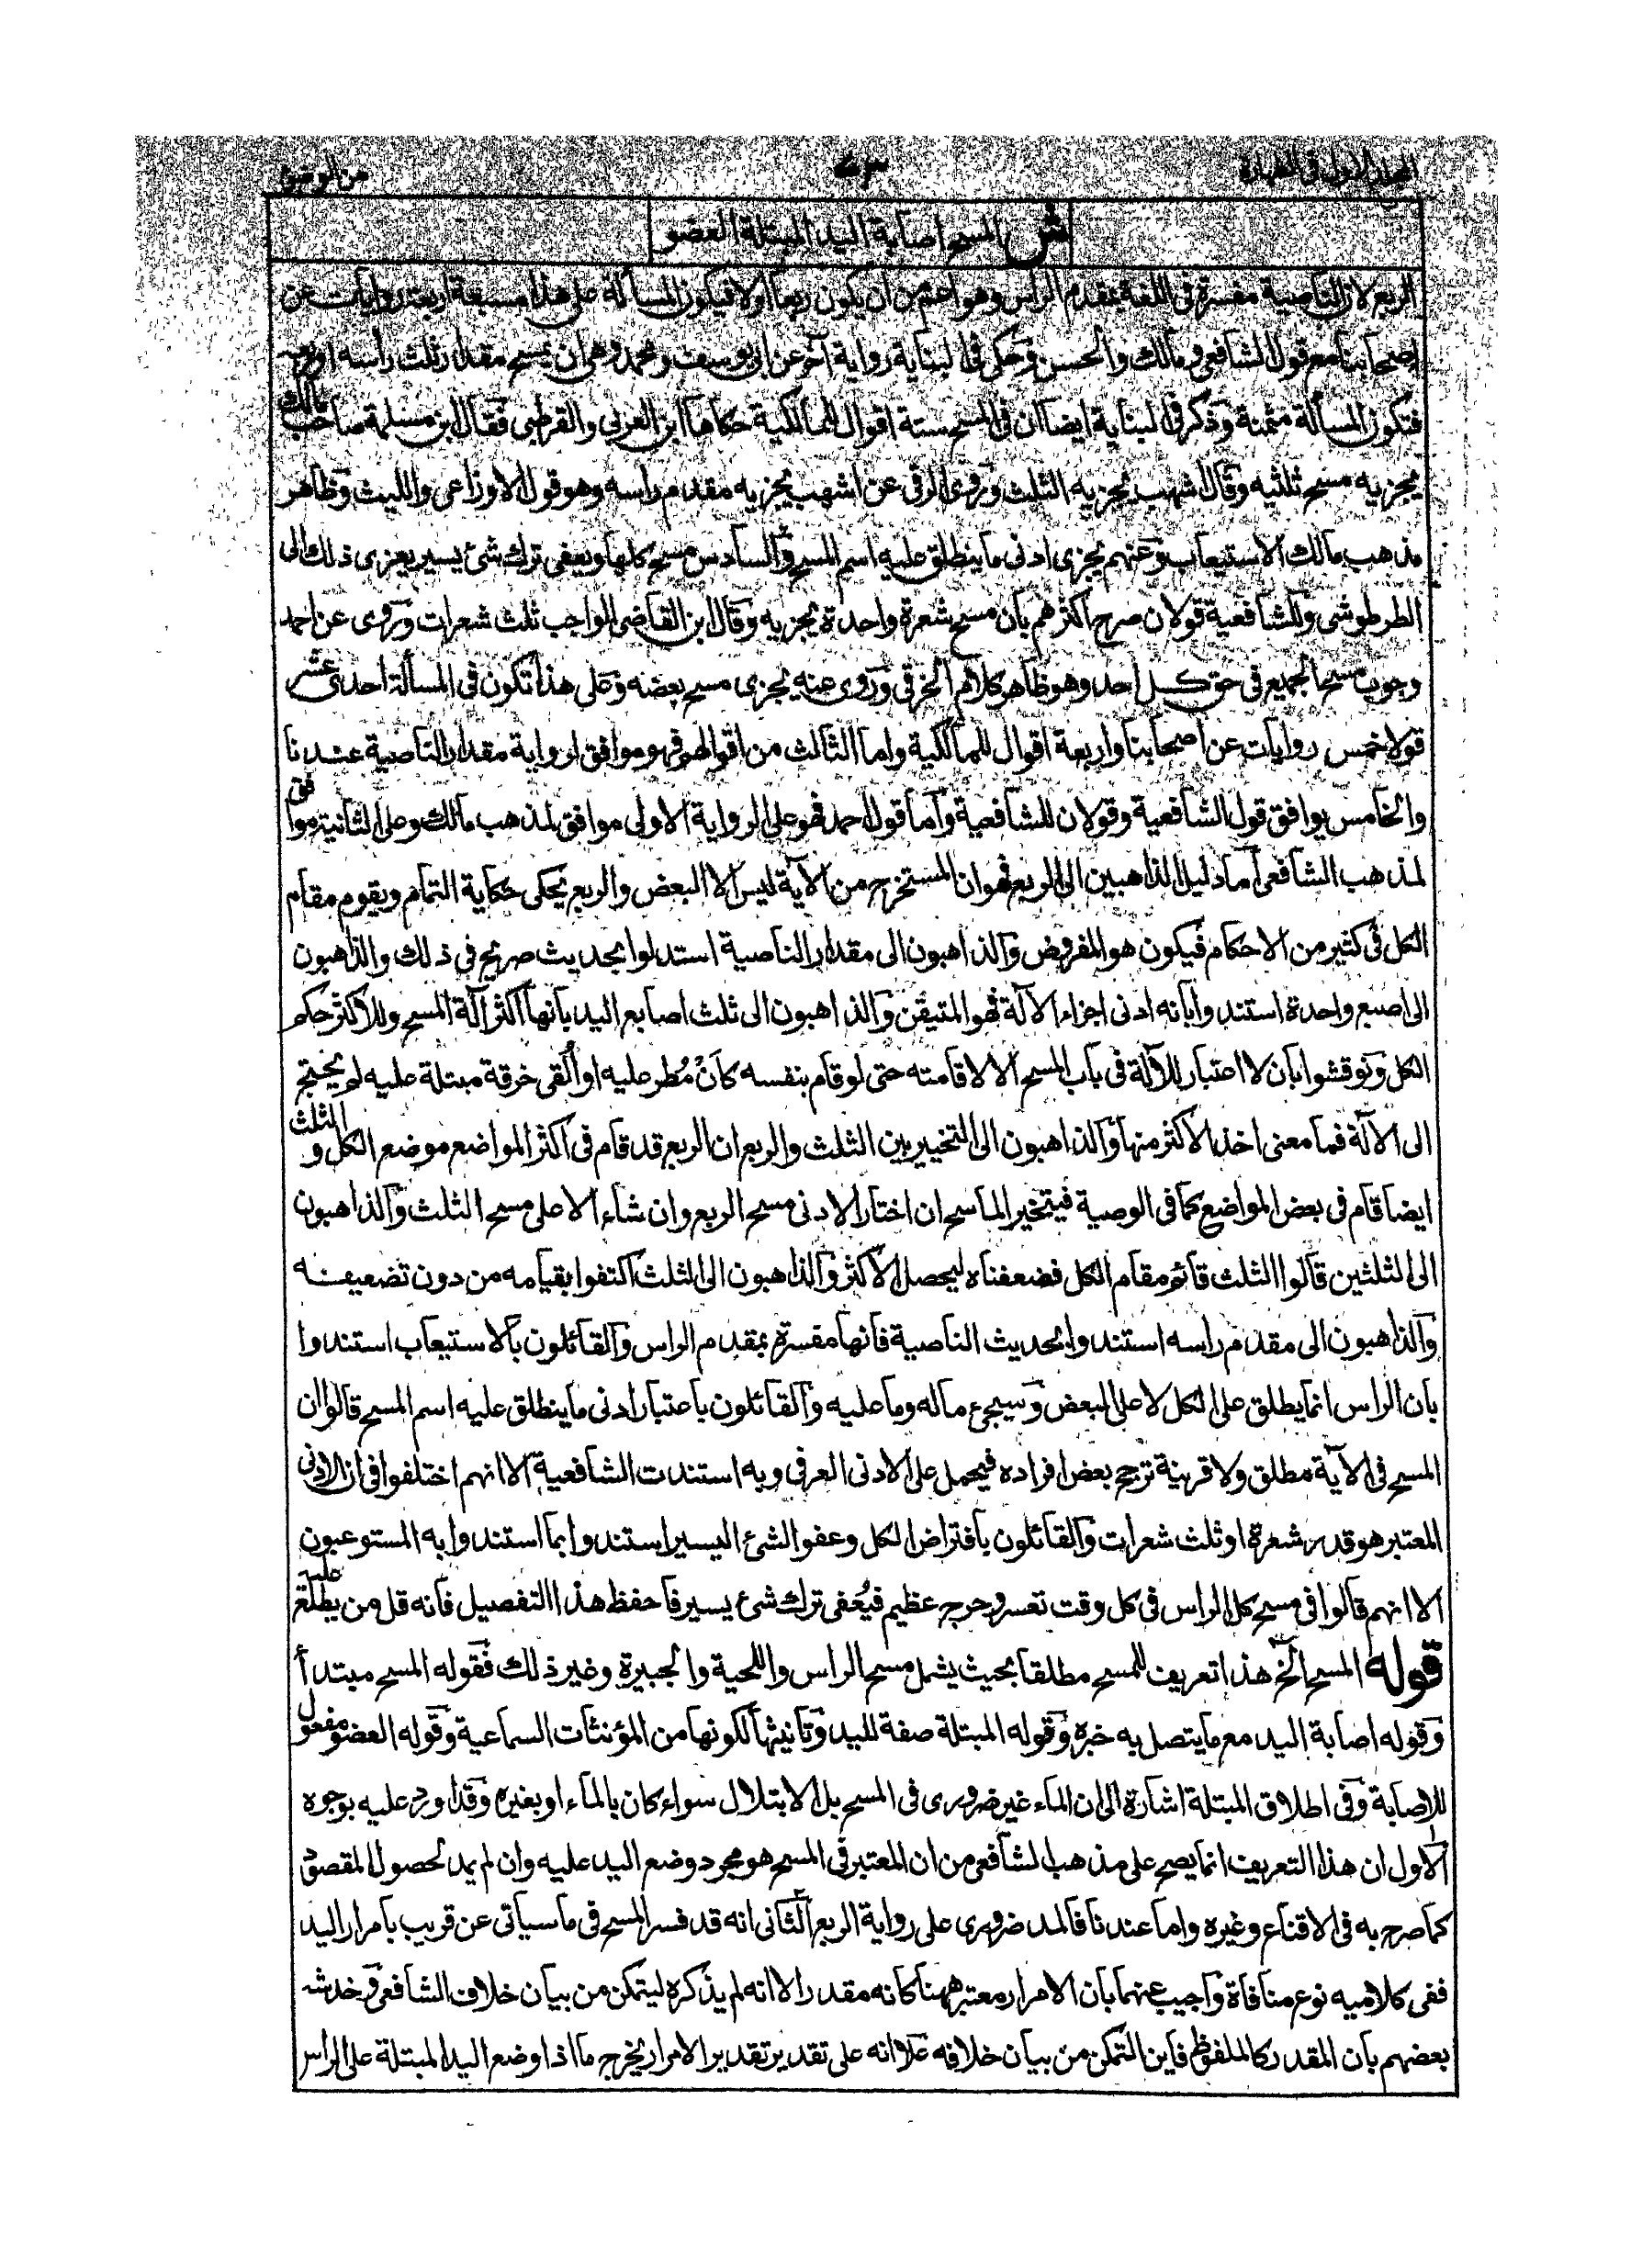 المجلد الاول فى الطهارة
من الوضوء
ش المسح اصابة اليد المبتلة العضو
الربع لان الناصية مفسرة فى اللغة بمقدم الرأس وهو اعم من ان يكون ربعا اولا فيكون المسألة على هذا مسبعة اربعة روايات عن
اصحابنا مع قول الشافعى ومالك والحسن وحكى فى البناية رواية آخر عن ابى يوسف ومحمد وهى ان يمسح مقدار ثلث رأسه او ربعه
فتكون المسألة مثمنة وذكر فى البناية ايضا ان فى المسح ستة اقوال للمالكية حكاها ابن العربى والقرطبى فقال ابن مسلمة صاحب مالك
يجزيه مسح ثلثيه وقال اشهب يجزيه الثلث وروى البرقى عن اشهب يجزيه مقدم راسه وهو قول الاوزاعى والليث وظاهر
مذهب مالك الاستيعاب وعنهم يجزى ادنى ما ينطلق عليه اسم المسح والسادس مسح كلها ويعفى ترك شئ يسير يعزى ذلك الى
الطرطوشى وللشافعية قولان صرح اكثرهم بان مسح شعرة واحدة يجزيه وقال ابن القاضى الواجب ثلث شعرات وروى عن احمد
وجوب مسح الجميع فى حق كل احد وهو ظاهر كلام الخرقى وروى عنه يجزى مسح بعضه وعلى هذا تكون فى المسألة احدى عشر
قولا خمس روايات عن اصحابنا واربعة اقوال للمالكية واما الثالث من اقوالهم فهو موافق لرواية مقدار الناصية عندنا
والخامس يوافق قول الشافعية وقولان للشافعية وآما قول احمد فهو على الرواية الاولى موافق لمذهب مالك وعلى الثانية موافق
لمذهب الشافعى آما دليل الذاهبين الى الربع فهو ان المستخرج من الآية ليس الا البعض والربع يحكى حكاية التمام ويقوم مقام
الكل فى كثير من الاحكام فيكون هو المفروض والذاهبون الى مقدار الناصية استدلوا بحديث صريح فى ذلك والذاهبون
الى اصبع واحدة استندوا بانه ادنى اجزاء الآلة فهو المتيقن والذاهبون الى ثلث اصابع اليد بانها اكثر آلة المسح وللاكثر حكم
الكل ونوقشوا بان لا اعتبار للآلة فى باب المسح الا لاقامته حتى لو قام بنفسه كأن مُطر عليه او اُلقى خرقة مبتلة عليه لم يحتج
الى الآلة فما معنى اخذ الاكثر منها والذاهبون الى التخيير بين الثلث والربع ان الربع قد قام فى اكثر المواضع موضع الكل والثلث
ايضا قام فى بعض المواضع كما فى الوصية فيتخير الماسح ان اختار الادنى مسح الربع وان شاء الاعلى مسح الثلث والذاهبون
الى الثلثين قالوا الثلث قائم مقام الكل فضعفناه ليحصل الاكثر والذاهبون الى الثلث اكتفوا بقيامه من دون تضعيفه
والذاهبون الى مقدم راسه استندوا بحديث الناصية فانها مفسرة بمقدم الراس والقائلون بالاستيعاب استندوا
بان الراس انما يطلق على الكل لا على البعض وسيجئ ماله وما عليه والقائلون باعتبار ادنى ما ينطلق عليه اسم المسح قالوا ان
المسح فى الآية مطلق ولا قرينة ترجح بعض افراده فيحمل على الادنى العرفى وبه استندت الشافعية الا انهم اختلفوا فى ان الادنى
المعتبر هو قدر شعرة او ثلث شعرات والقائلون بافتراض الكل وعفو الشئ اليسير استندوا بما استندوا به المستوعبون
الا انهم قالوا فى مسح كل الراس فى كل وقت تعسر وحرج عظيم فيُعفى ترك شئ يسير فاحفظ هذا التفصيل فانه قل من يطلع عليه
قوله المسح الخ هذا تعريف للمسح مطلقا بحيث يشمل مسح الراس واللحية والجبيرة وغير ذلك فقوله المسح مبتدأ
وقوله اصابة اليد مع ما يتصل به خبره وقوله المبتلة صفة لليد وتانيثها لكونها من المؤنثات السماعية وقوله العضو مفعول
للاصابة وفى اطلاق المبتلة اشارة الى ان الماء غير ضرورى فى المسح بل الابتلال سواء كان بالماء او بغيره وقد اورد عليه بوجوه
الاول ان هذا التعريف انما يصح على مذهب الشافعى من ان المعتبر فى المسح هو مجرد وضع اليد عليه وان لم يمد لحصول المقصود
كما صرح به فى الاقناع وغيره واما عندنا فالمد ضرورى على رواية الربع الثانى انه قد فسر المسح فى ما سيأتى عن قريب بامرار اليد
ففى كلاميه نوع منافاة واجيب عنهما بان الامرار معتبر ههنا كانه مقدر الا انه لم يذكره ليتمكن من بيان خلاف الشافعى وخدشه
بعضهم بان المقدر كالملفوظ فاين التمكن من بيان خلافه علا انه على تقدير تقدير الامرار يخرج ما اذا وضع اليد المبتلة على الراس